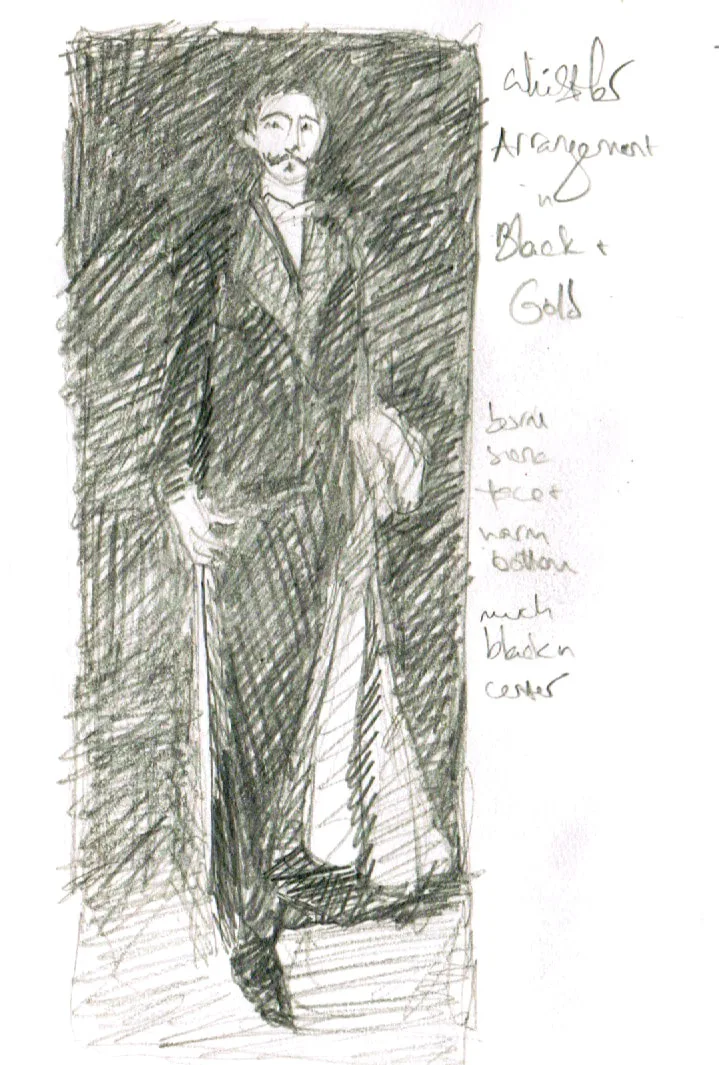 Whistler
Arrangement
in
Black +
Gold
face +
warm
bottom
much
black in
center